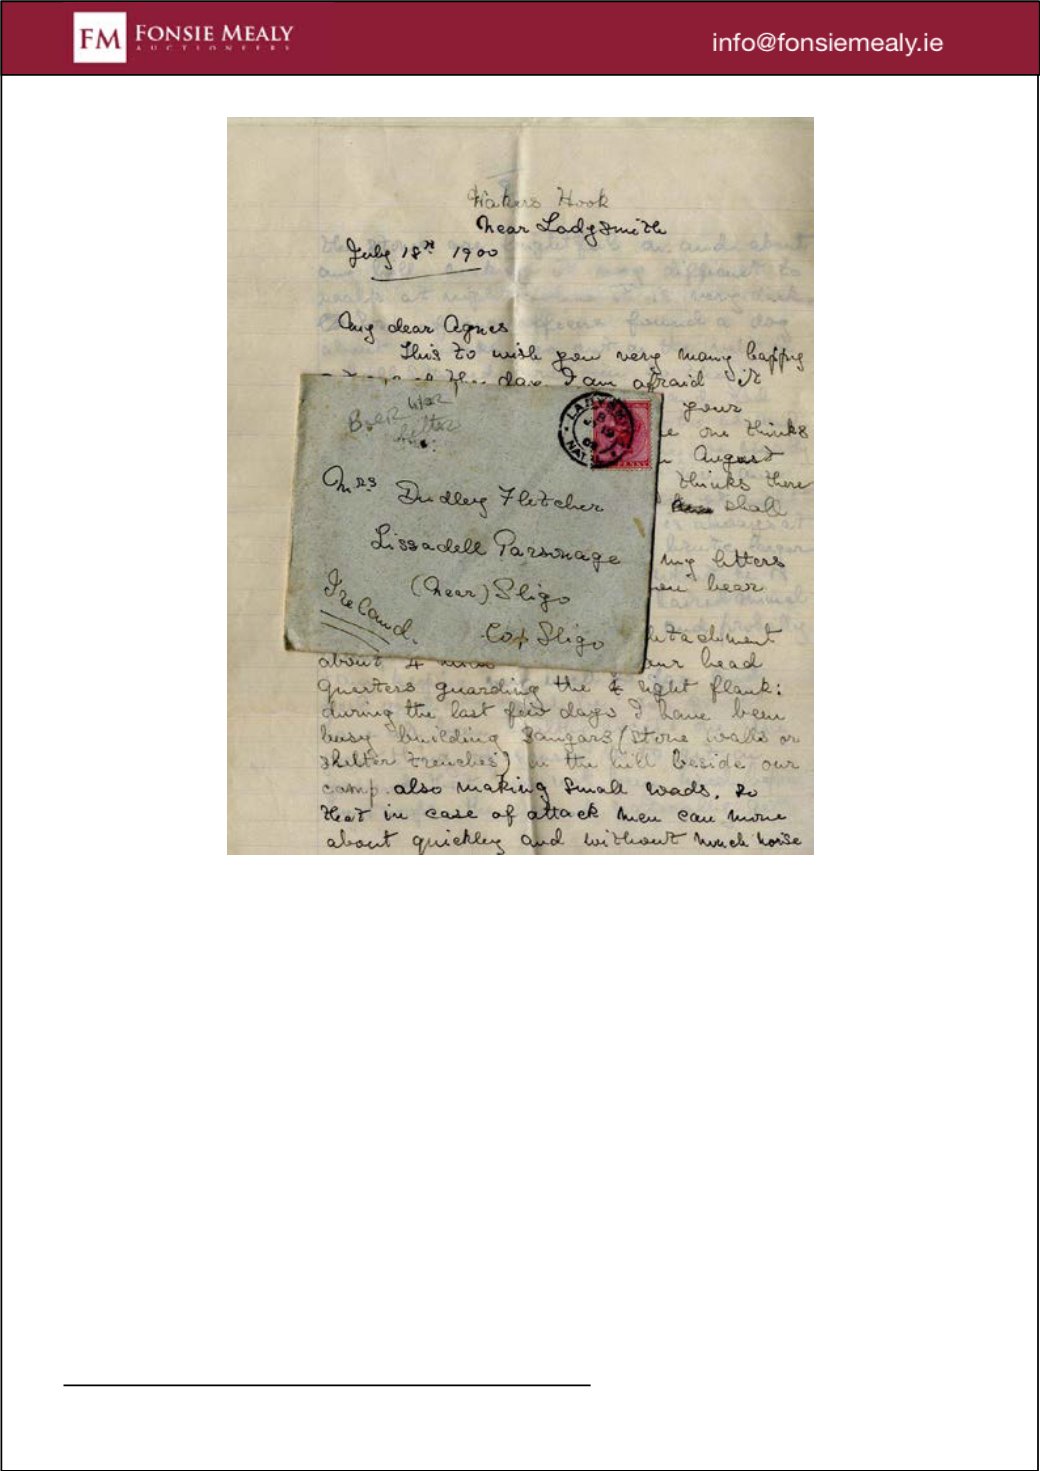 FM FONSIE MEALY
AUCTIONEERS
info@fonsiemealy.ie
Hook
Near Ladysmith
July 18th 1900
My dear Agnes
This to wish you very many happy
the day I am afraid it
your
one thinks
August
thinks there
shall
my letters
hear
detachment
about 4 our head
quarters guarding the right flank:
during the last few days I have been
busy building Sangars (stone walls or
shelter trenches) on the hill beside our
camp. also making small roads, so
that in case of attack men can move
about quickly and without much noise
Boer War
letter
LADYSMITH
NATAL
PENNY
Mrs Dudley Fletcher
Lissadell Parsonage
(Near) Sligo
Co. Sligo
Ireland.